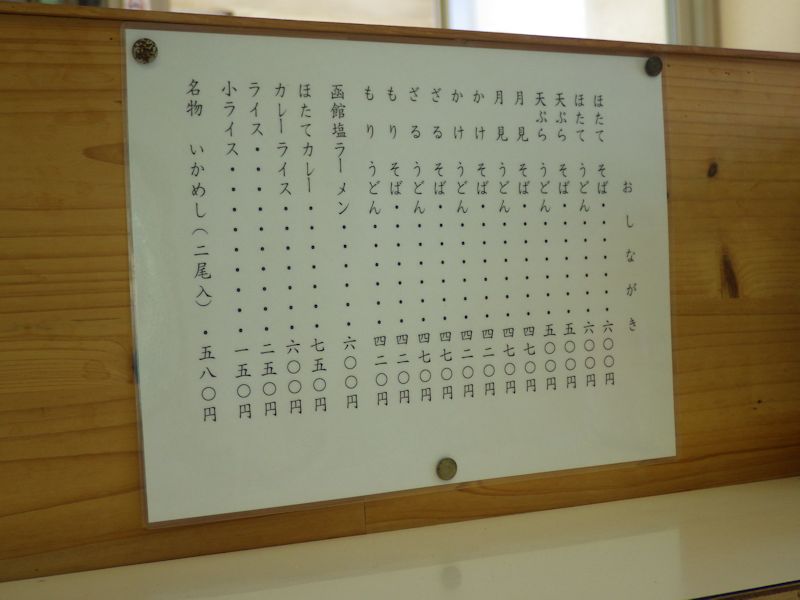 おしながき
ほたて そば・・・・・・・六〇〇円
ほたて うどん・・・・・・六〇〇円
天ぷら そば・・・・・・・五〇〇円
天ぷら うどん・・・・・・五〇〇円
月見 そば・・・・・・・四七〇円
月見 うどん・・・・・・四七〇円
かけ そば・・・・・・・四二〇円
かけ うどん・・・・・・四二〇円
ざる そば・・・・・・・四七〇円
ざる うどん・・・・・・四七〇円
もり そば・・・・・・・四二〇円
もり うどん・・・・・・四二〇円
函館塩ラーメン・・・・・・六〇〇円
ほたてカレー・・・・・・・七五〇円
カレーライス・・・・・・・六〇〇円
ライス・・・・・・・・・・二五〇円
小ライス・・・・・・・・・一五〇円
名物 いかめし(二尾入)・五八〇円